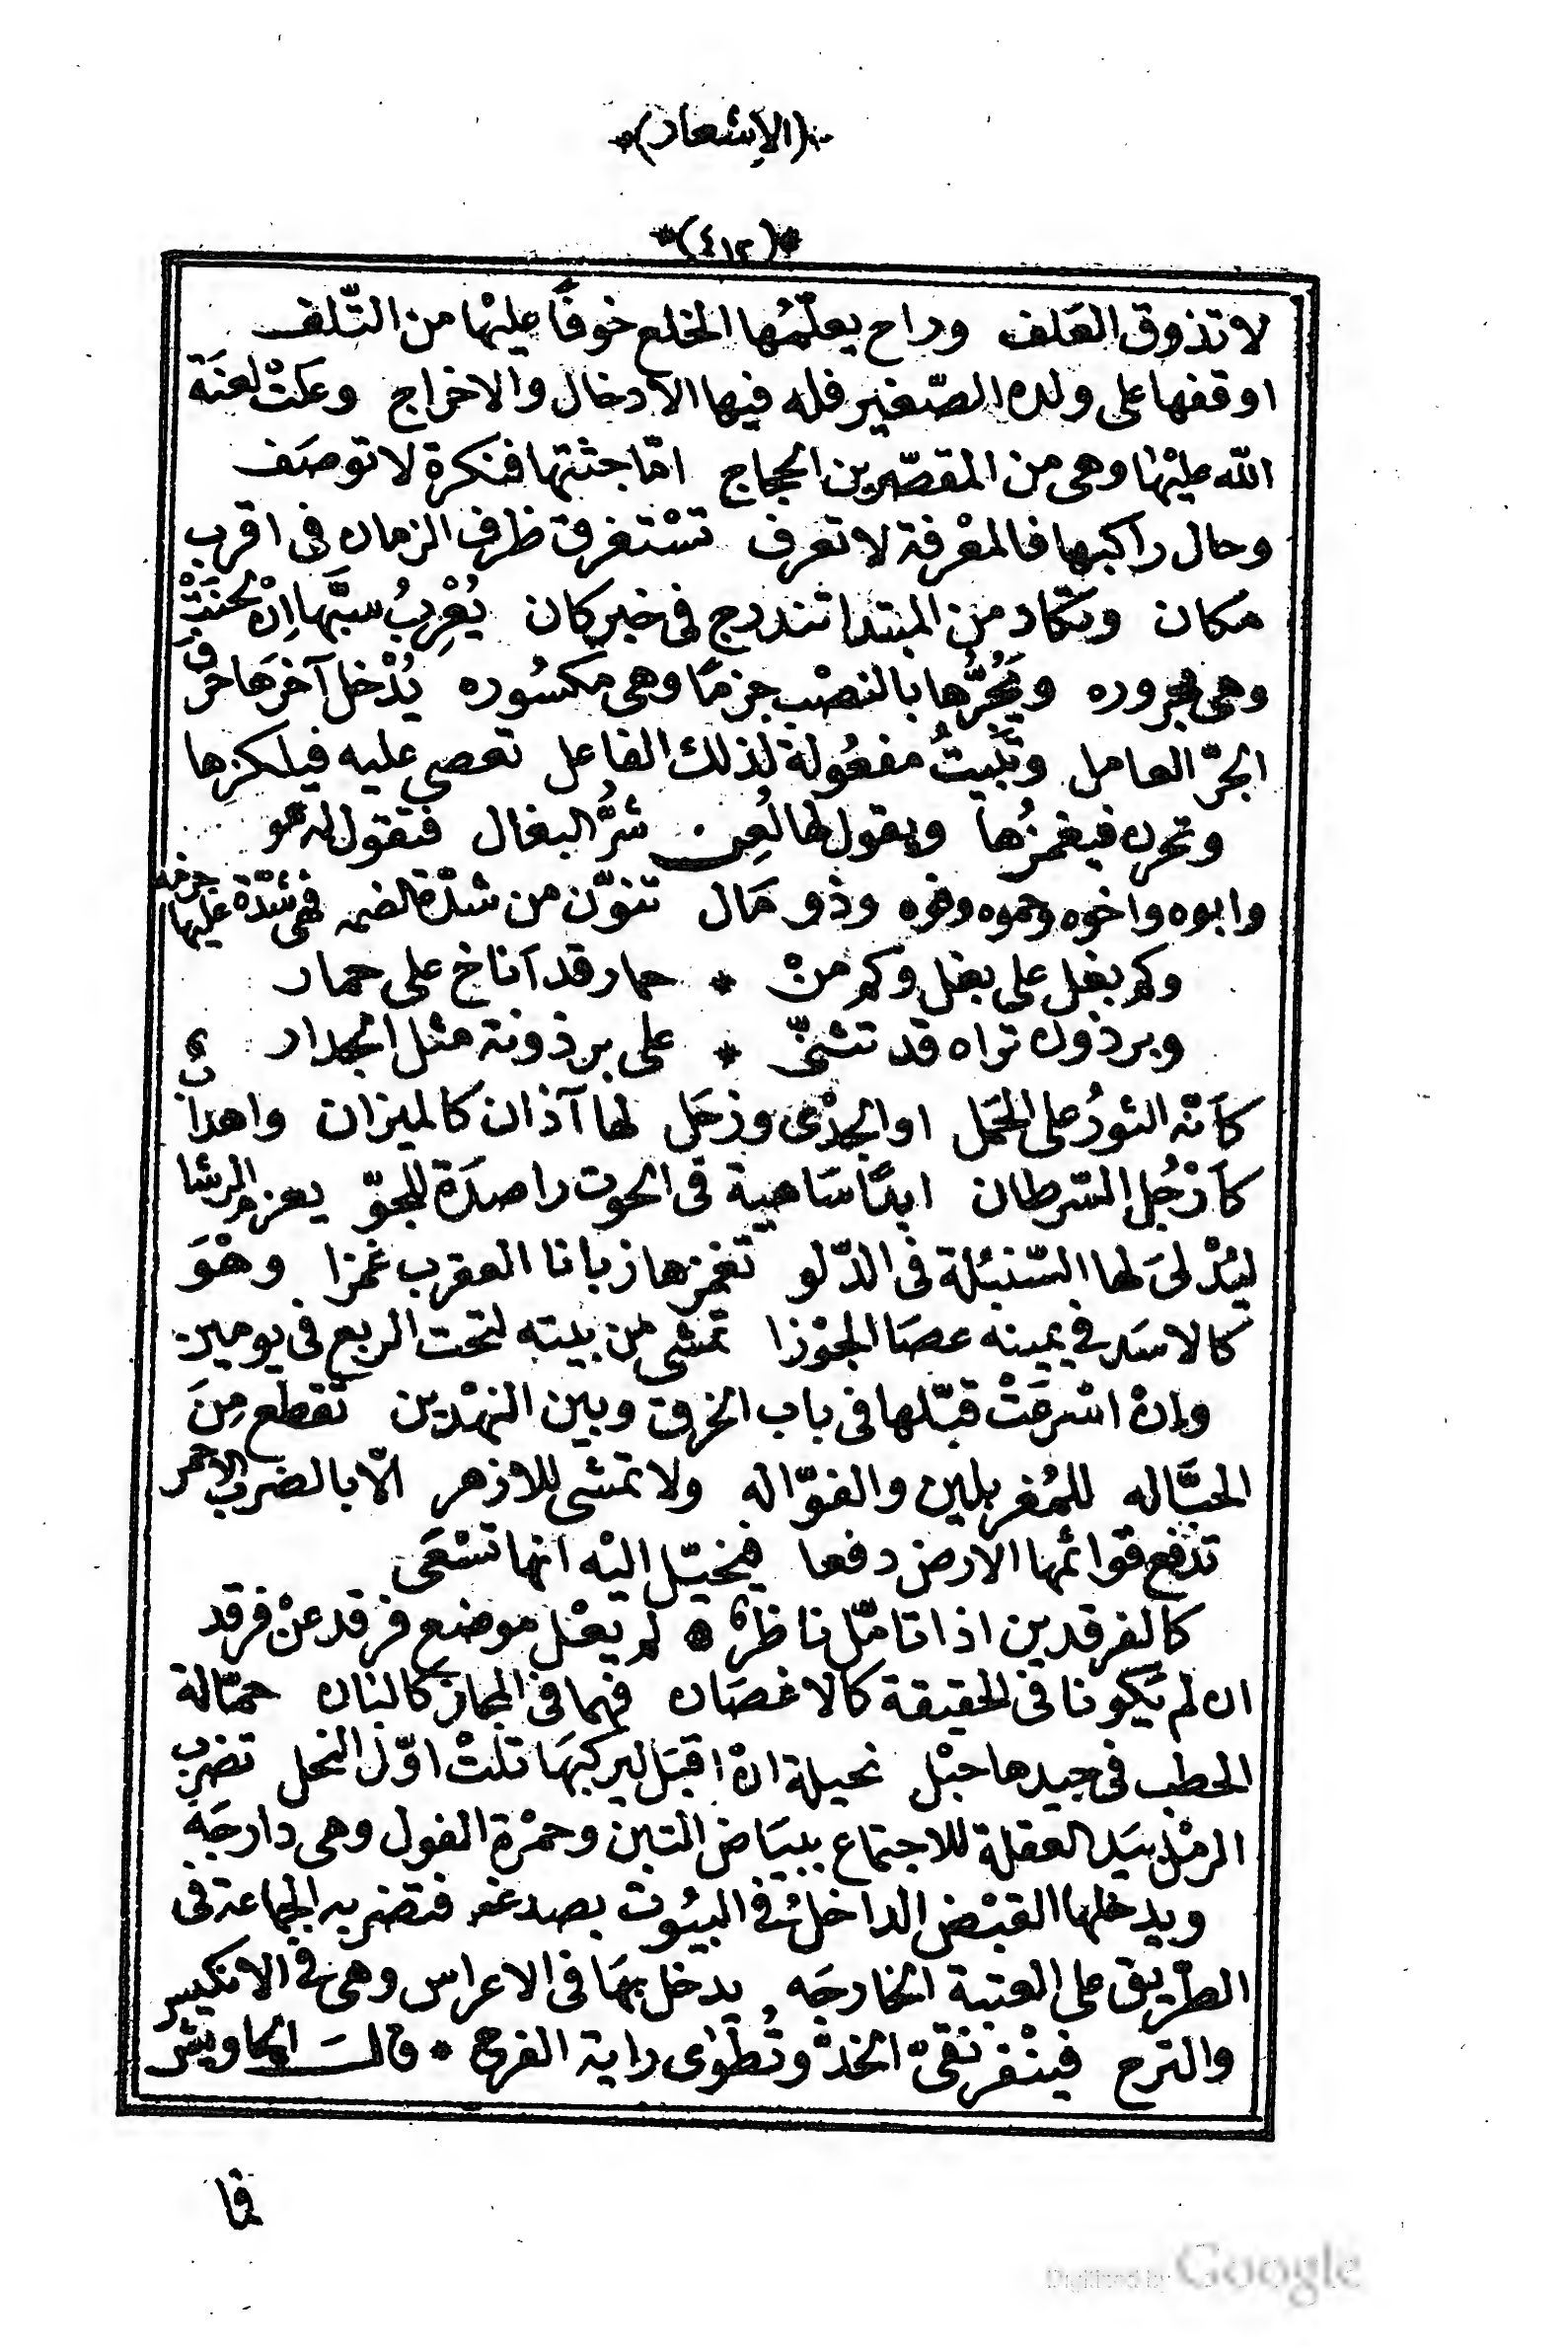 *(الاشعار)*
*(٤١٢)*
لا تذوق العَلف وراح يعلّمُها الخلع خوفًا عليْها من التّلف
اوقفها على ولده الصّغير فله فيها الادخال والاخراج وعكتْ لعنَة
الله عليْها وهى من المقصّرين الحجاج امّا جثتها فنكرة لا توصَف
وحال راكبها فالمعْرفة لا تعرف تسْتغرق ظرف الزمان فى اقرب
مكان وتكاد من المبتدا تندرج فى خبر كان يُعْرِبُ سبَّها اِنْ لحنَتْ
وهى مجروره ويَجُرُّها بالنصْب جزمًا وهى مكسُوره يُدْخل آخرَها حرْف
الجرّ العامل وتَبيتُ مفعُولة لذلك الفاعل تعصى عليه فيلكزها
وتحرن فيغمزُها ويقول لها لُعِن شرُّ البغال فتقول له هو
وابوه واخوه وحموه وفوه وذو مَال تنوّن من شدّة الضمه فهى شدّة عليها
وكم بغل على بغل وكم منْ * حمار قد آناخ على حمار
وبرذون تراه قد تشخّى * على برذونة مثل الجدار
كأنّه الثورُ على الحَمل او الجدْى وزحَل لها آذان كالميزان
كأرْجُل السّرطان ابدًا سَاهية فى الحوت راصدَة للجوّ الرشا
ليُدْلىَ لها السّنبُلة فى الدّلو تغمزها زبانا العقرب غمزا وهْوَ
كالاسَد فى يمينه عصَا الجوْزا تمشى من بيته لتحت الربع فى يومين
وان اسْرعَتْ قبّلها فى باب الخرق وبين النهْدين تقطع مِنَ
الحبَّاله للمُغربلين والفوّاله ولا تمشى للازهر الّا بالضرب الاحمر
تدفع قوائمها الارض دفعا فيخيّل اليْه انها تسْعَى
كالفرقدين اذا تامّل ناظرٌ * لم يعْل موضع فرقد عنْ فرقد
ان لم يَكونا فى الحقيقة كالاغصَان فهما فى المجاز كالبنان حمّالة
الحطب فى جيدها حبْل نحيلة انْ اقبَل ليركبهَا تلَتْ اوّل النحل تضرب
الرمْل بيَد العقلة للاجتماع ببيَاض التبن وحمْرة الفول وهى دارجَة
ويدخلها القبْض الداخل فى البيُوت بصدغه فتضر به الجماعة فى
الطّريق على العتبة الخارجَه يدخل بهَا فى الاعراس وهى فى الانكيس
والترح فينْفر نقىّ الخدّ وتُطوٰى راية الفرح * قالت الجاويش
قا
Digitized by Google